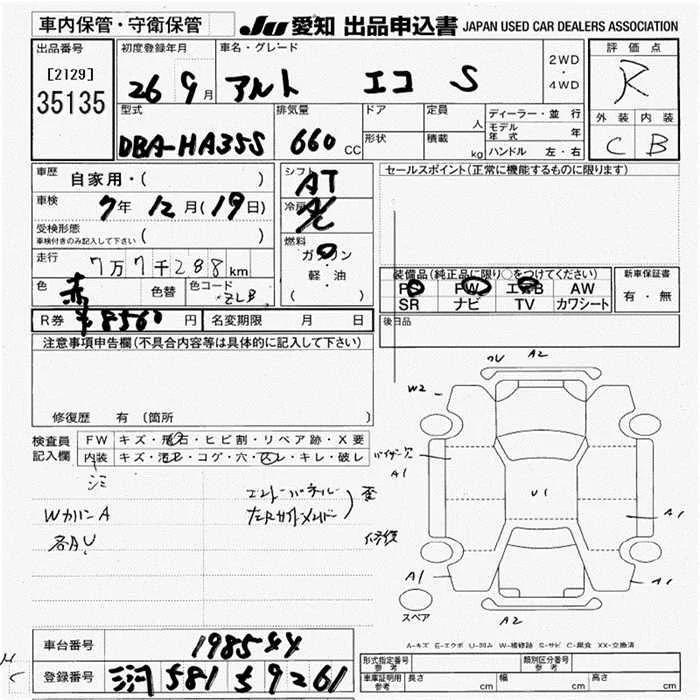 車内保管・守衛保管 JU 愛知 出品申込書 JAPAN USED CAR DEALERS ASSOCIATION
出品番号 初度登録年月 車名・グレード 2WD ・ 4WD 評価点
[2129] 35135 26 9月 アルト エコ S R
型式 排気量 ドア 定員 人 ディーラー・並 行 外装 内装
DBA-HA35S 660 CC 形状 積載 kg モデル年式 年 C B
ハンドル 左・右
車歴 自家用・( ) シフト AT セールスポイント(正常に機能するものに限ります)
車検 7年 12月(19日) 冷房 A/C
受検形態 車検付きのみ記入して下さい ( ) 燃料 ガソリン
走行 7万7千288km 軽・油 装備品(純正品に限り○をつけてください) 新車保証書
色 赤 色替 色コード ZLB ( ) PS PW エアB AW 有・無
SR ナビ TV カワシート
R券 ¥8560円 名変期限 月 日 後日品
注意事項申告欄(不具合内容等は具体的に記入して下さい)
修復歴 有 (箇所
検査員 FW キズ・飛石・ヒビ割・リペア跡・X要
記入欄 内装 キズ・汚レ・コゲ・穴・スレ・キレ・破レ
シミ
WカリンA
各AU
歪
修復
A2
W2
A1
U1
A1
A1
A1
A2
スペア
A-キズ E-エクボ U-凹み W-補修跡 S-サビ C-腐食 XX-交換済
車台番号 198544
登録番号 三河 581 ち 9261
形式指定番号 参考 類別区分番号 参考
車庫証明用 参考 長さ cm 幅 cm 高さ cm